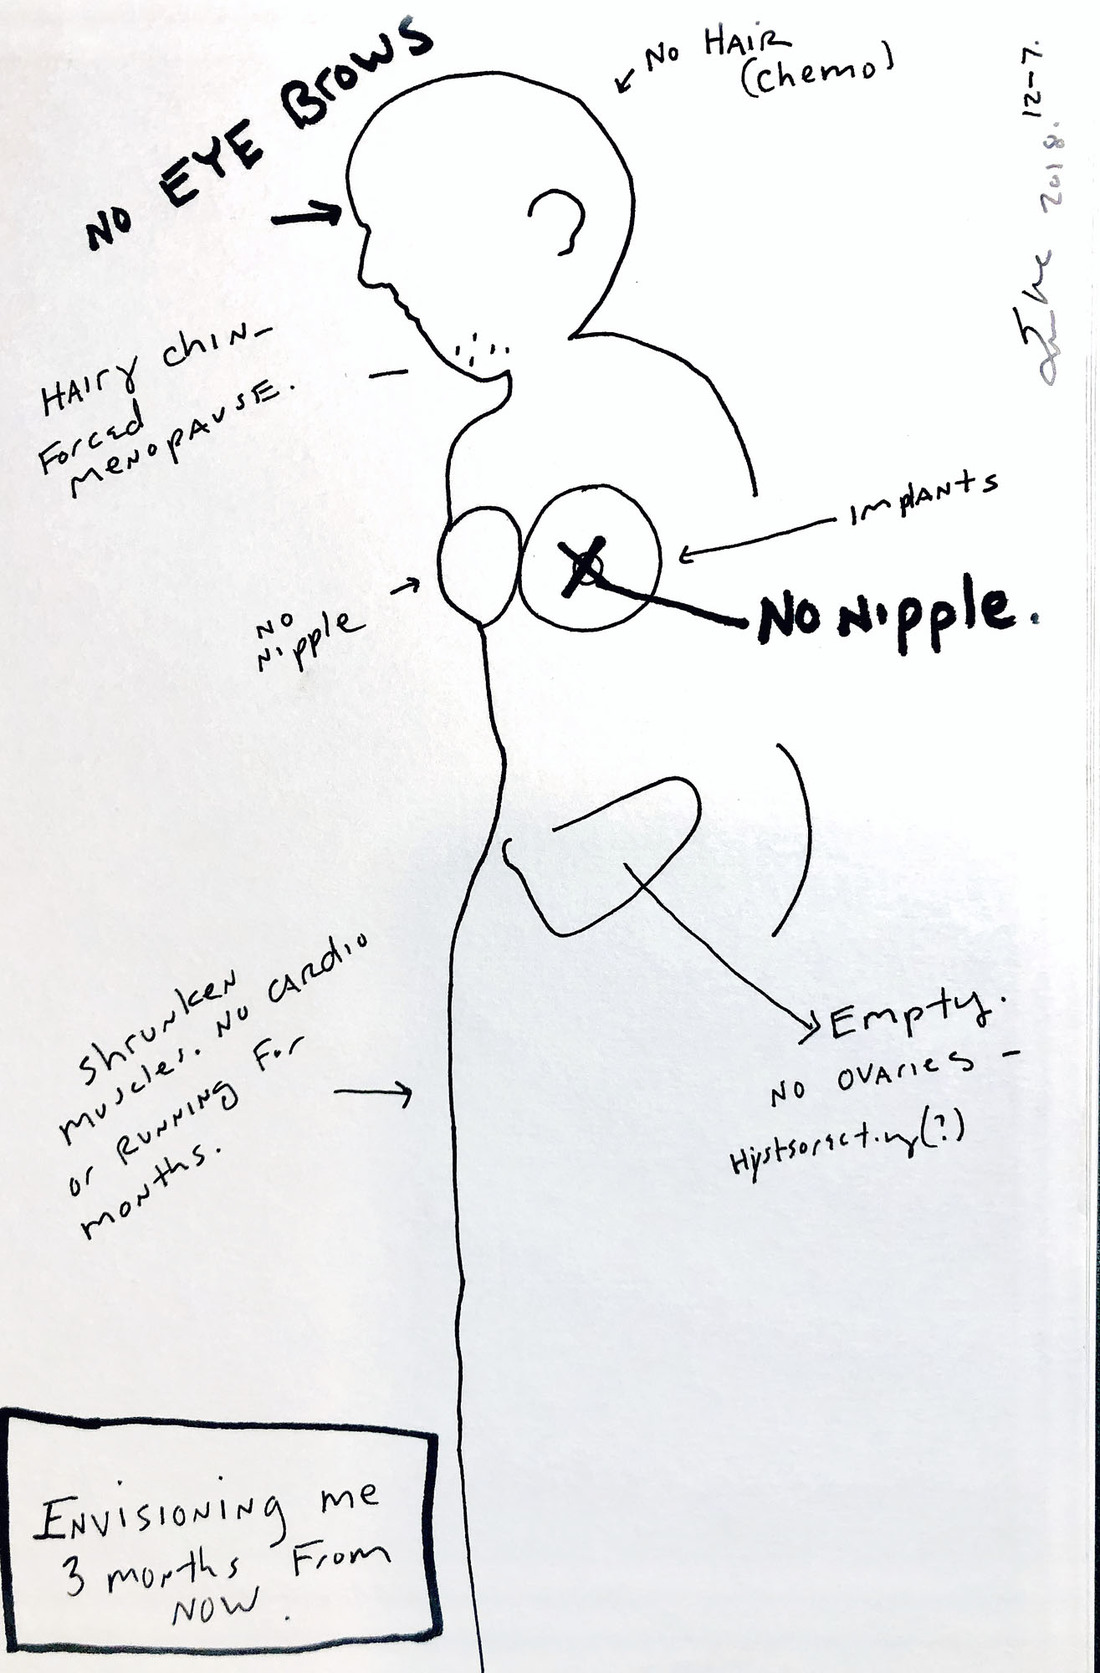 NO EYE BROWS
NO HAIR
(Chemo)
12-7.
2018.
HAIRY CHIN-
FORCED
MENOPAUSE.
IMPLANTS
NO NIPPLE.
NO
NIPPLE
SHRUNKEN
MUSCLES. NO CARDIO
OR RUNNING FOR
MONTHS.
Empty.
NO OVARIES -
ENVISIONING me
3 months From
NOW.